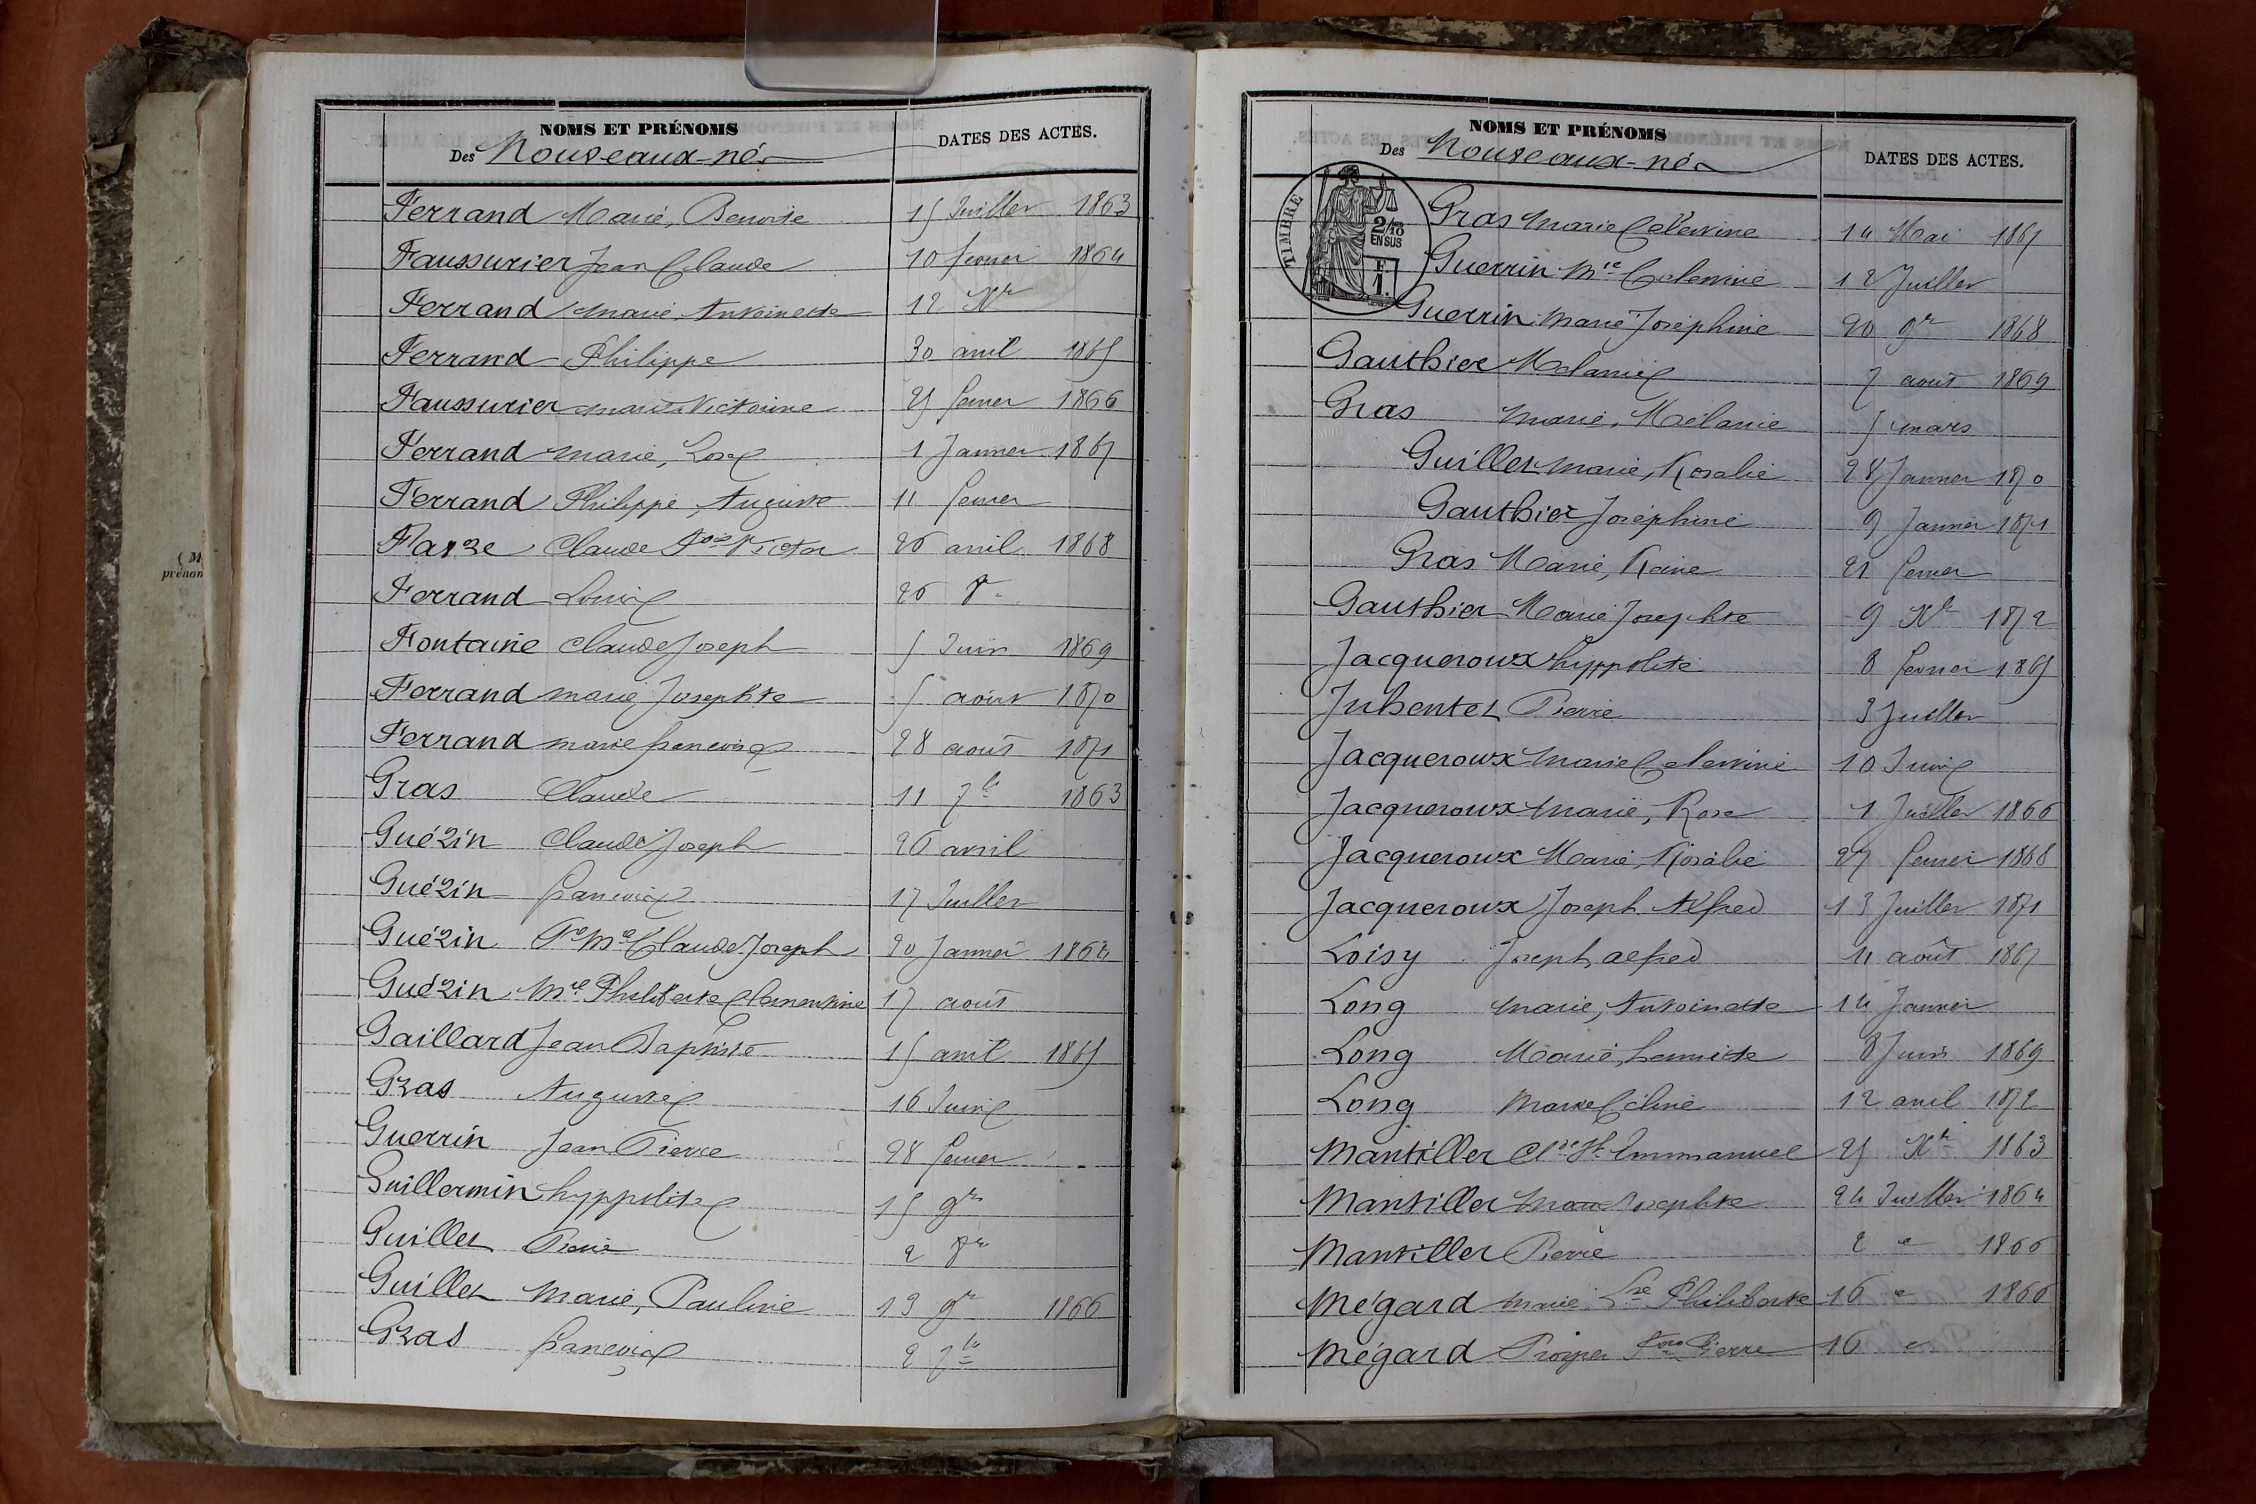 NOMS ET PRÉNOMS
DATES DES ACTES.
Des Nouveaux-nés
Ferrand Marie, Benoite 15 Juillet 1863
Faussurier Jean Claude 10 fevrier 1864
Ferrand Marie Antoinette 12 Xbre
Ferrand Philippe 30 avril 1865
Faussurier Marie Victorine 25 fevrier 1866
Ferrand Marie, Rose 1 Janvier 1867
Ferrand Philippe, Auguste 11 fevrier
Claude Fois Victor 26 avril 1868
Ferrand Louis 26 8re
Fontaine Claude Joseph 5 Juin 1869
Ferrand Marie Josephte 5 août 1870
Ferrand Marie françoise 28 août 1871
Gras Claude 11 7bre 1863
Guérin Claude Joseph 26 avril
Guérin françois 17 Juillet
Guérin Claude Joseph 20 Janvier 1864
Guérin Mie Philiberte Clementine 17 août
Gaillard Jean Baptiste 15 avril 1865
Gras Auguste 16 Juin
Guerrin Jean Pierre 28 fevrier
Guillermin hyppolite 15 9re
Guillet Pierre 2 8re
Guillet Marie, Pauline 13 9re 1866
Gras françois 2 7bre
NOMS ET PRÉNOMS
DATES DES ACTES.
Des Nouveaux-nés
TIMBRE
2/10 EN SUS
F. 1.
Gras Marie Celestine 14 Mai 1867
Guerrin Mie Celestine 12 Juillet
Guerrin Marie Joséphine 20 9re 1868
Gauthier Melanie 7 août 1869
Gras Marie, Mélanie 5 mars
Guillet Marie, Rosalie 28 Janvier 1870
Gauthier Joséphine 9 Janvier 1871
Gras Marie, Reine 21 fevrier
Gauthier Marie Josephte 9 Xbre 1872
Jacqueroux hyppolite 8 fevrier 1865
Juhentet Pierre 3 Juillet
Jacqueroux Marie Celestine 10 Juin
Jacqueroux Marie, Rose 1 Juillet 1866
Jacqueroux Marie, Rosalie 27 fevrier 1868
Jacqueroux Joseph Alfred 13 Juillet 1871
Loisy Joseph alfred 11 août 1867
Long Marie, Antoinette 14 Janvier
Long Marie, 8 Juin 1869
Long Marie Céline 12 avril 1872
Mantillet Emmanuel 25 Xbre 1863
Mantillet Marie Josephte 24 Juillet 1864
Mantillet Pierre 2 " 1866
Mégard Marie Philiberte 16 " 1866
Mégard Prosper Fois Pierre 16 "